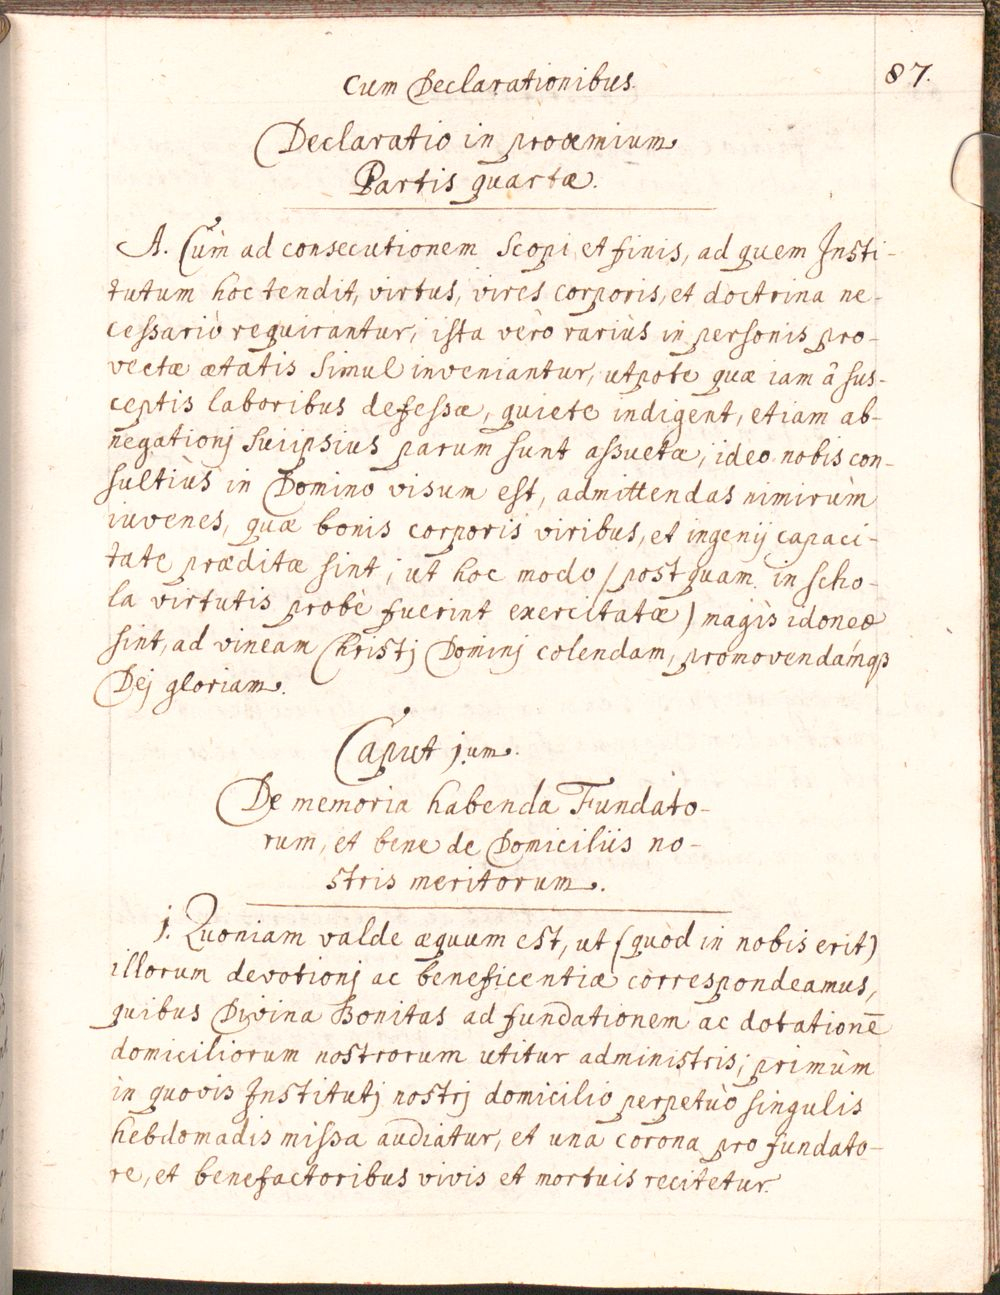 87.
Cum Declarationibus.
Declaratio in proœmium
Partis quartæ.
A. Cùm ad consecutionem Scopi et finis, ad quem Insti-
tutum hoc tendit, virtus, vires corporis, et doctrina ne-
cessariò requirantur; ista verò rariùs in personis pro-
vectæ ætatis Simul inveniantur, utpote quæ iam â sus-
ceptis laboribus defessæ, quiete indigent, etiam ab-
negationj Suiipsius parum sunt assuetæ, ideo nobis con-
sultiùs in Domino visum est, admittendas nimirùm
iuvenes, quæ bonis corporis viribus, et ingenij capaci-
tate præditæ sint; ut hoc modo (postquam in scho-
la virtutis probè fuerint exercitatæ) magìs idoneæ
sint, ad vineam Christj Dominj colendam, promovendámqꝫ
Dej gloriam.
Caput j.um.
De memoria habenda Fundato-
rum, et bene de Domiciliis no-
stris meritorum.
j. Quoniam valde æquum est, ut (quòd in nobis erit)
illorum devotionj ac beneficentiæ correspondeamus,
quibus Divina Bonitas ad fundationem ac dotationē
domiciliorum nostrorum utitur administris; primùm
in quovis Institutj nostrj domicilio perpetuò singulis
hebdomadis missa audiatur, et una corona pro fundato-
re, et benefactoribus vivis et mortuis recitetur.